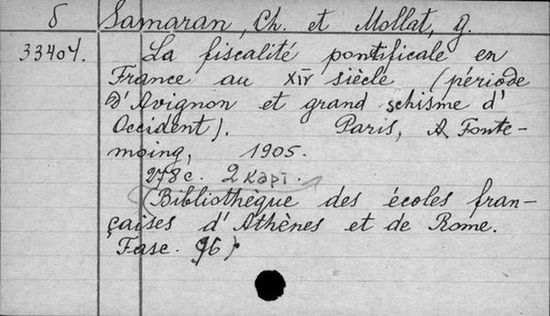 δ Samaran, Ch. et Mollat, G.
33404. La fiscalité pontificale en
France au XIV siècle (période
d'Avignon et grand schisme d'
Occident). Paris, A Fonte-
moing, 1905.
278 c. 2 карт.
(Bibliothèque des écoles fran-
çaises d'Athènes et de Rome.
Fasc. 96)